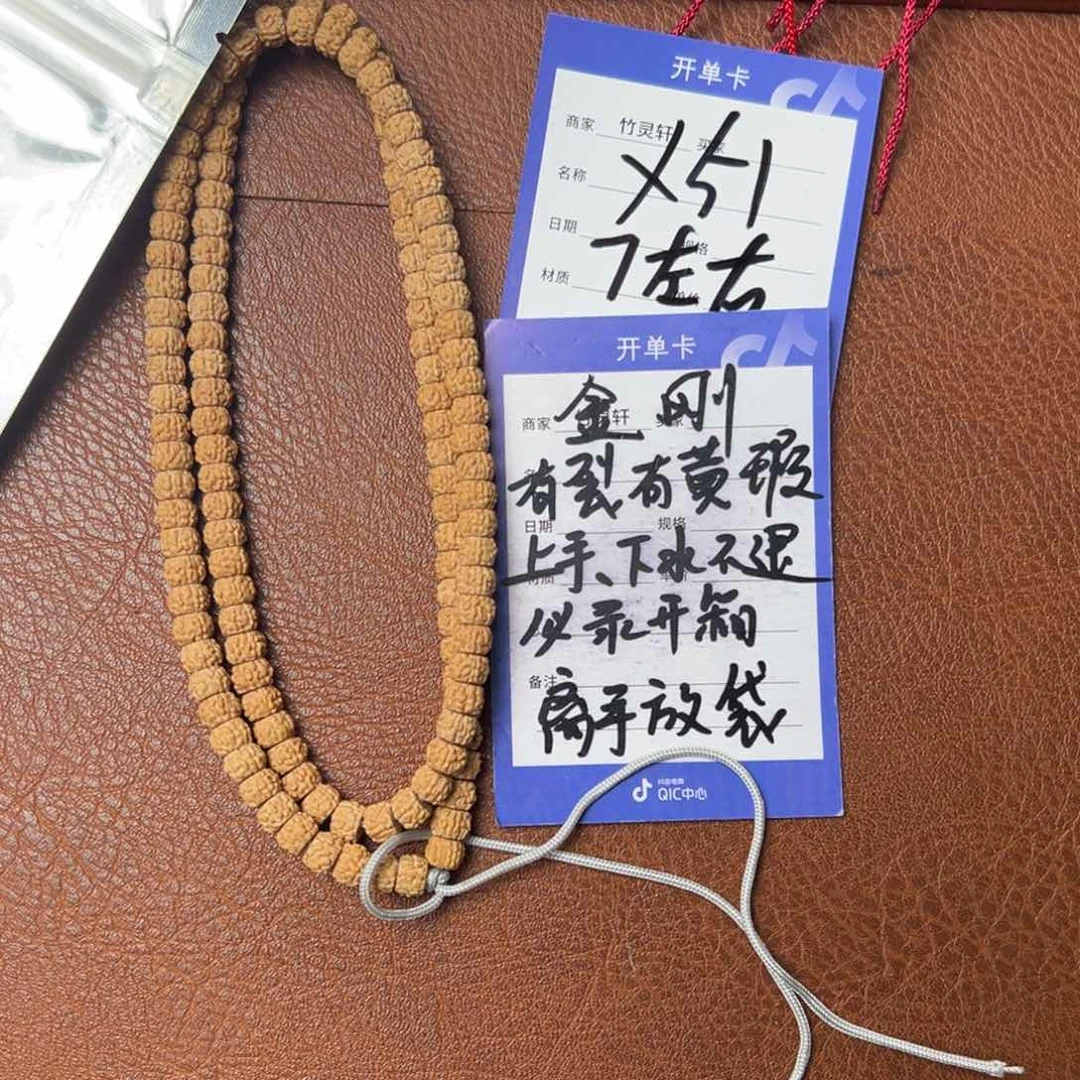 开单卡
商家 竹灵轩
乂51
名称
日期 规格
7左右
材质
开单卡
商家 轩
金刚
有裂有黄瑕
日期 规格
上手、下水不退
必录开箱
备注
离手放袋
抖音电商
QIC中心